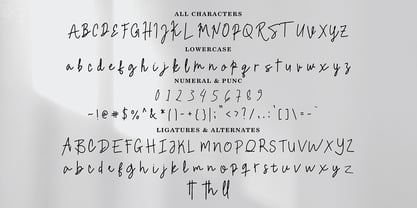 ALL CHARACTERS
ABCDEFGHIJKLMNOPQRSTUVXYZ
LOWERCASE
abcdefghijklmnopqrstuvwxyz
NUMERAL & PUNC
0123456789
~!@#$%^&*()-+{}|:"<>?/..:'[]\=-`
LIGATURES & ALTERNATES
ABCDEFGHIJKLMNOPQRSTUVWXYZ
abcdefghijklmnopqrstuvwxyz
tt th ll